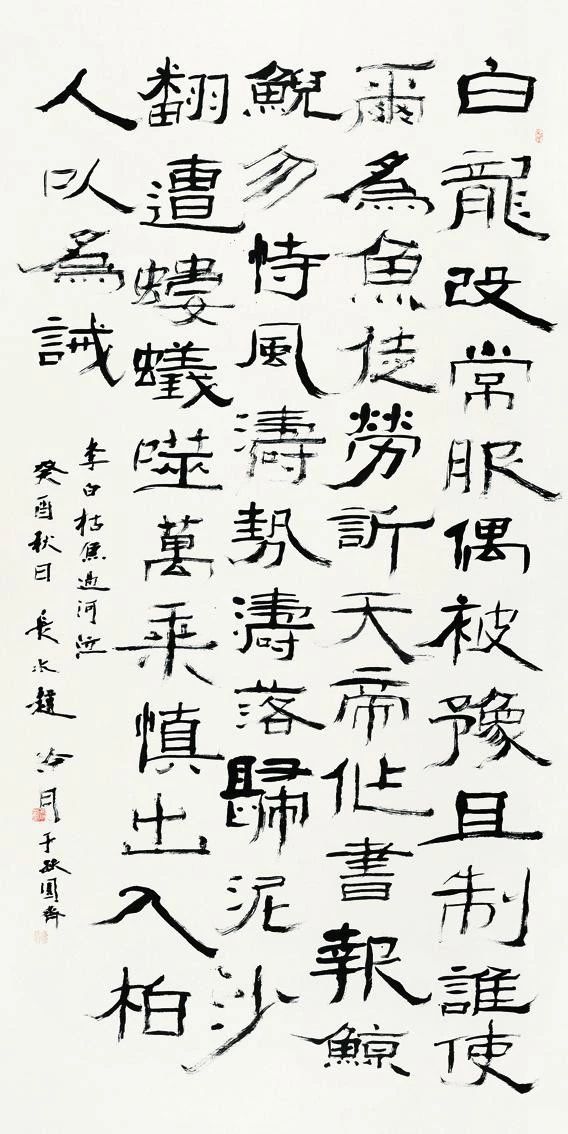 白龍改常服偶被豫且制誰使
爾爲魚徒勞訴天帝作書報鯨
鯢勿恃風濤勢濤落歸泥沙
翻遭螻蟻噬萬乘慎出入柏
人以爲誡
李白枯魚過河泣
癸酉秋日長水趙冷月于缺圓齋